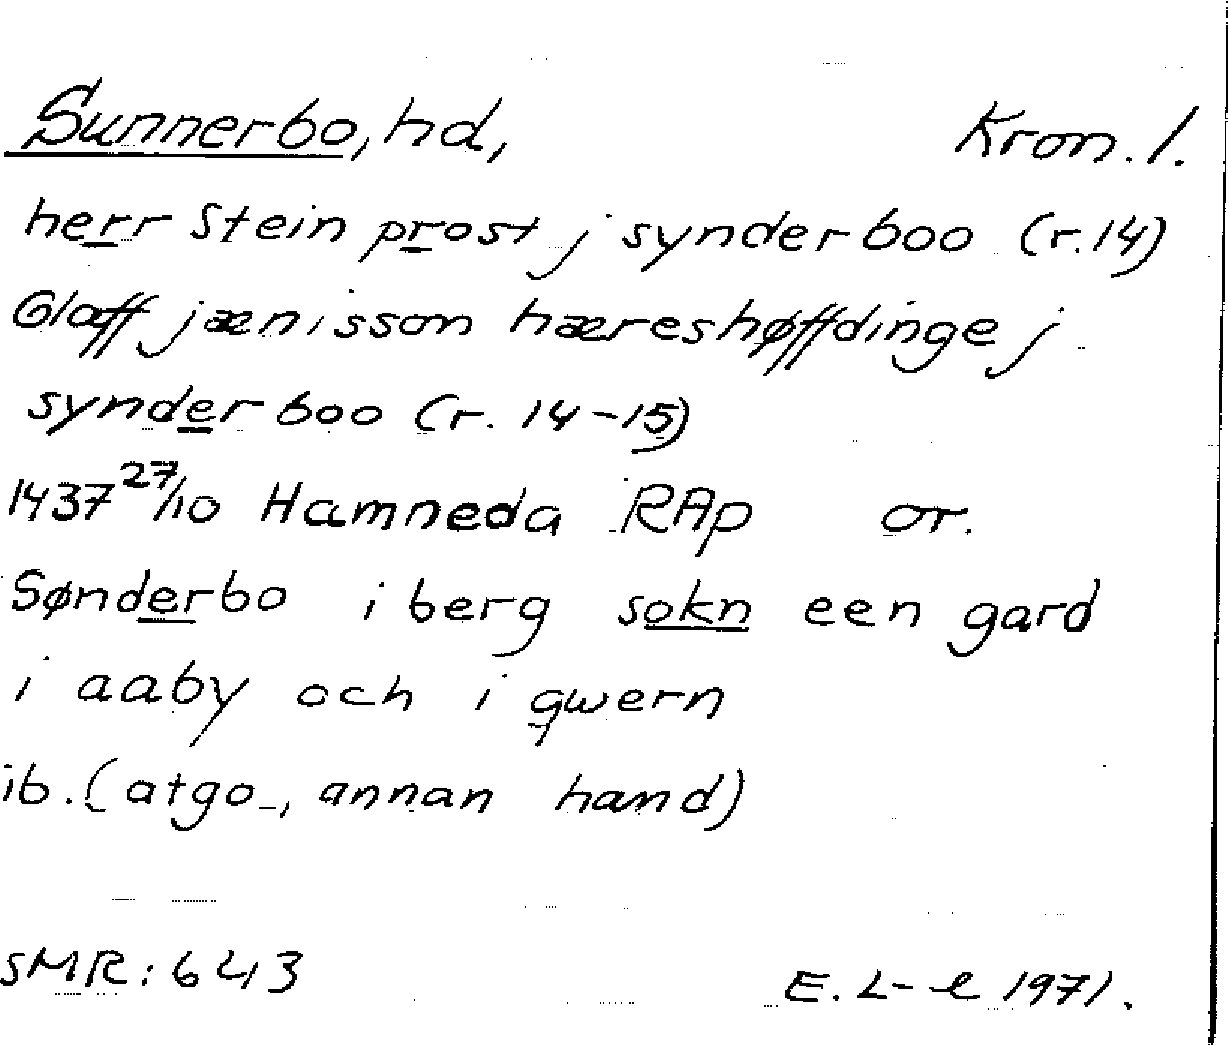 Sunnerbo, hd, Kron. l.
herr Stein prost j synderboo (r.14)
Olaff jænisson hæreshøffdinge j
synderboo (r. 14-15)
1437 27/10 Hamneda RAp or.
Sønderbo i berg sokn een gard
i aaby och i qwern
ib. (atgo-, annan hand)
SMR: 643 E. L-e 1971.